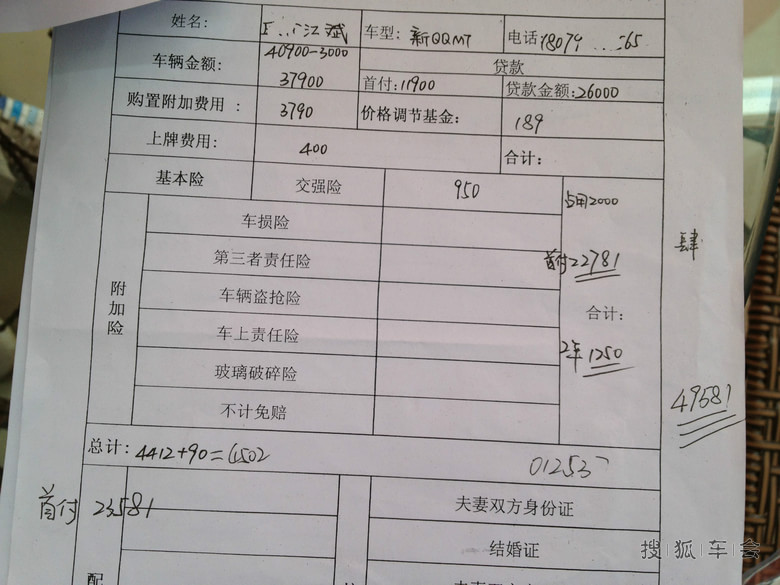 姓名: 江斌 车型: 新QQMT 电话 18079 65
车辆金额: 40900-3000
37900
贷款
首付:11900 贷款金额:26000
购置附加费用: 3790 价格调节基金: 189
上牌费用: 400 合计:
基本险 交强险 950 占用2000
附加险
车损险
第三者责任险 首付22781
车辆盗抢险
合计:
车上责任险
2年 1250
玻璃破碎险
不计免赔
肆
49681
总计: 4412+90=4502 01253
首付 23581
夫妻双方身份证
结婚证
配
搜狐车会